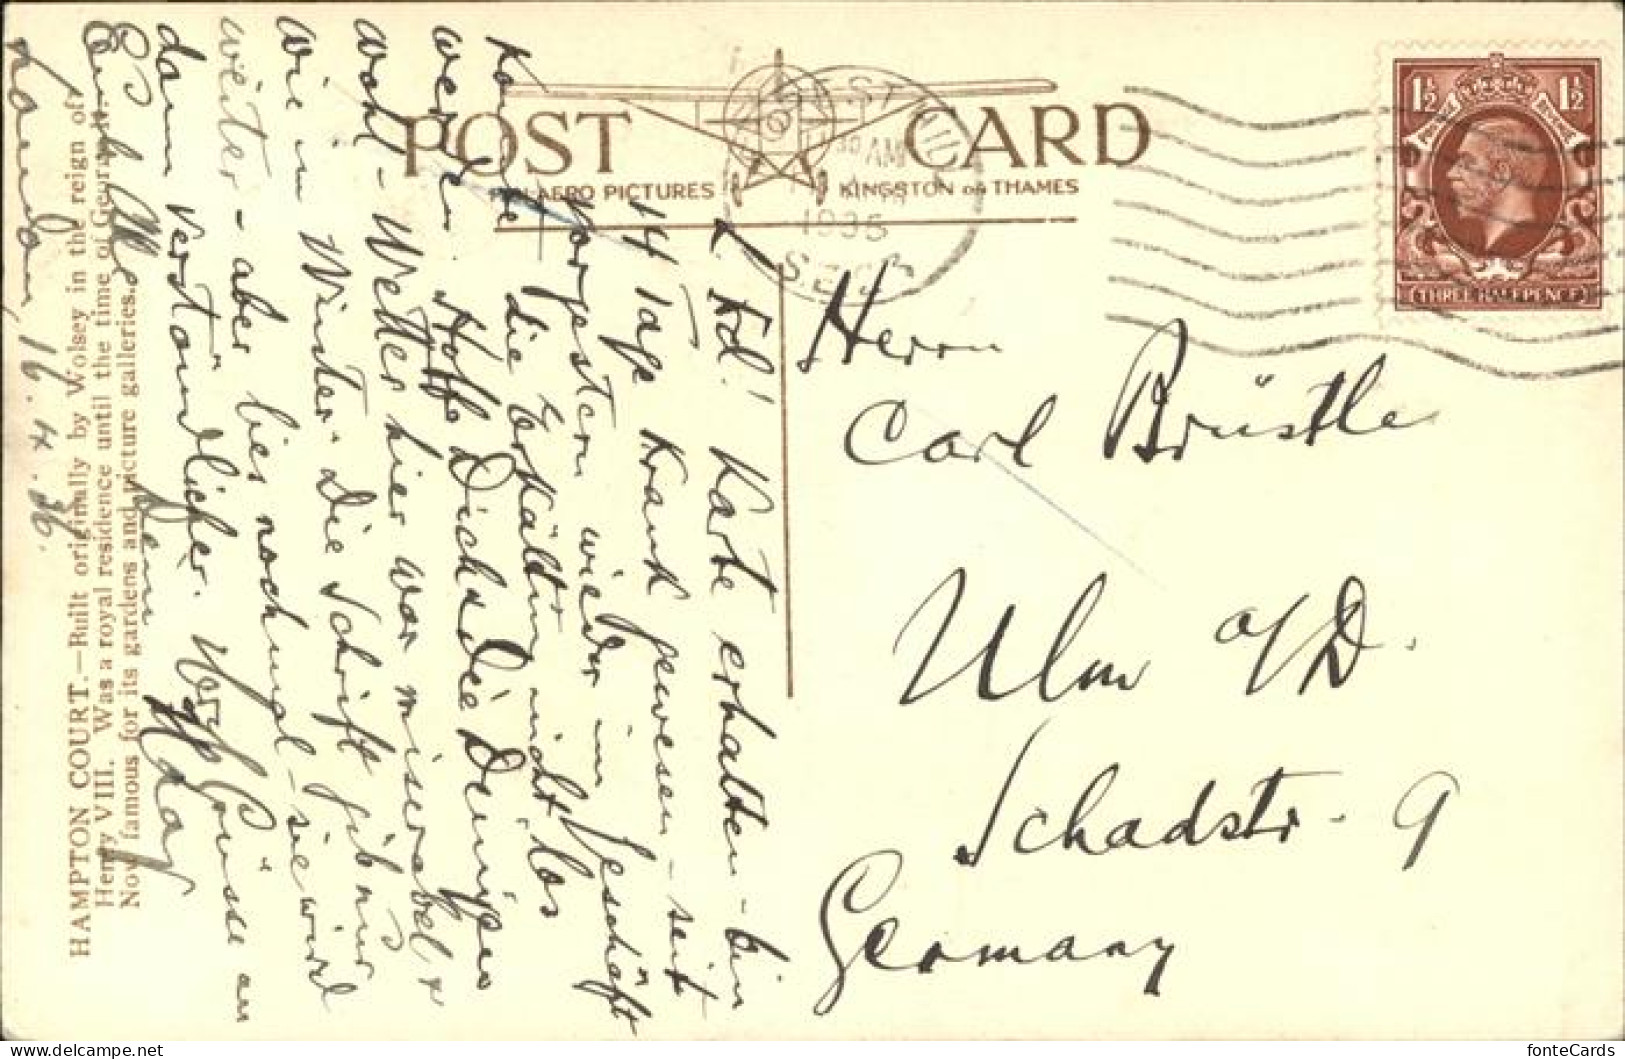 POST CARD
AERO PICTURES KINGSTON on THAMES
ST
30 AM
1935
S.E.
1½ 1½
THREE HALFPENCE
HAMPTON COURT.—Built originally by Wolsey in the reign of
Henry VIII. Was a royal residence until the time of George II.
Now famous for its gardens and picture galleries.
London, 16. 4. 36.
L Ed! Karte erhalten - bin
14 Tage krank gewesen - seit
vorgestern wieder im Geschäft
die Erkältung nicht los
werden. Hoffe Dich & die Deinigen
wohl - Wetter hier war miserabel &
wie im Winter. Die Schrift gib nur
weiter - aber lies nochmal - sie wird
dann verständlicher. Grüsse an
Euch Alle Dein
Herrn
Carl Brüstle
Ulm a/D.
Schadstr. 9
Germany
fonteCards